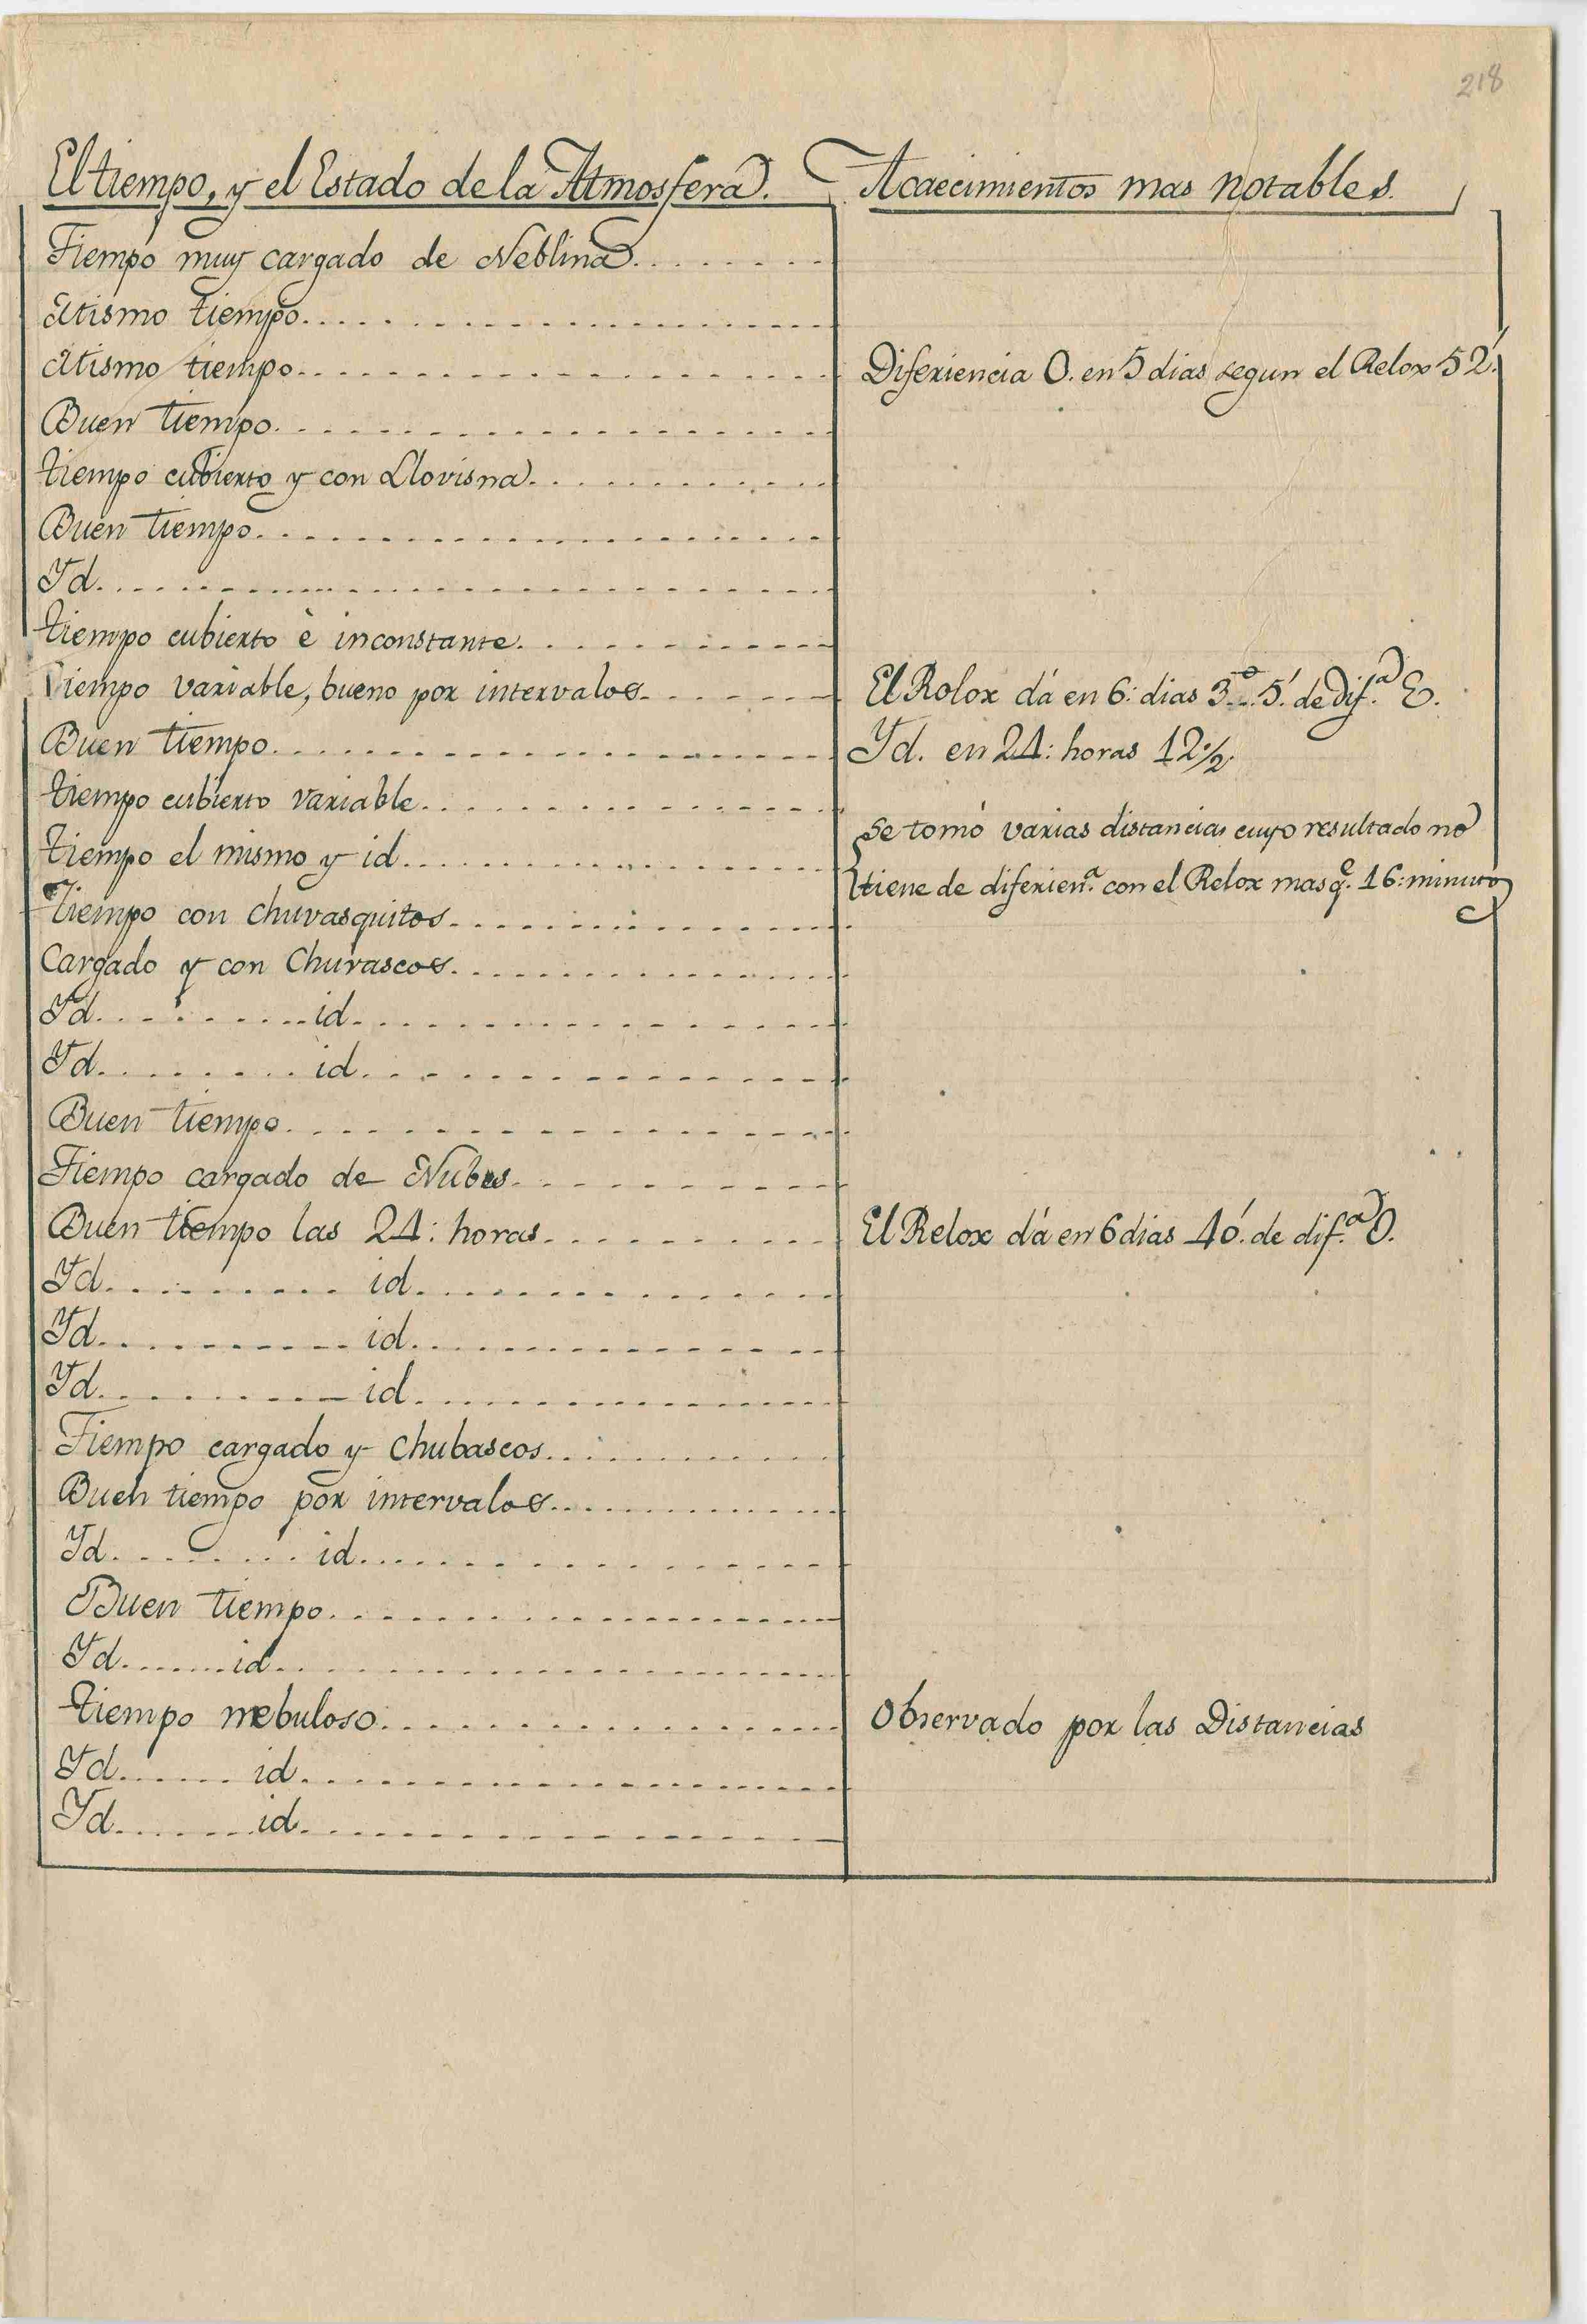 218
El tiempo, y el Estado de la Atmosfera. Acaecimientos mas notables.
Tiempo muy cargado de Neblina........
Mismo tiempo........
Mismo tiempo........ Diferiencia O. en 5 dias segun el Relox 52'.
Buen tiempo........
tiempo cubierto y con Llovisna........
Buen tiempo........
Yd........
tiempo cubierto è inconstante........
Tiempo variable, bueno por intervalos........ El Rolox dá en 6: dias 3º..5'. de Dif.ª E.
Buen tiempo........ Yd. en 24: horas 12½.
tiempo cubierto variable........
Se tomó varias distancias cuyo resultado no
tiempo el mismo y id........
tiene de diferien.ª con el Relox mas q.e 16: minutos
Tiempo con chuvasquitos........
Cargado y con Chuvascos........
Yd........id........
Yd........id........
Buen tiempo........
Tiempo cargado de Nubes........
Buen tiempo las 24: horas........ El Relox dá en 6 dias 40'. de dif.ª O.
Yd........id........
Yd........id........
Yd........id........
Tiempo cargado y chubascos........
Buen tiempo por intervalos........
Yd........id........
Buen tiempo........
Yd........id........
tiempo nebuloso........ Observado por las Distancias
Yd........id........
Yd........id........